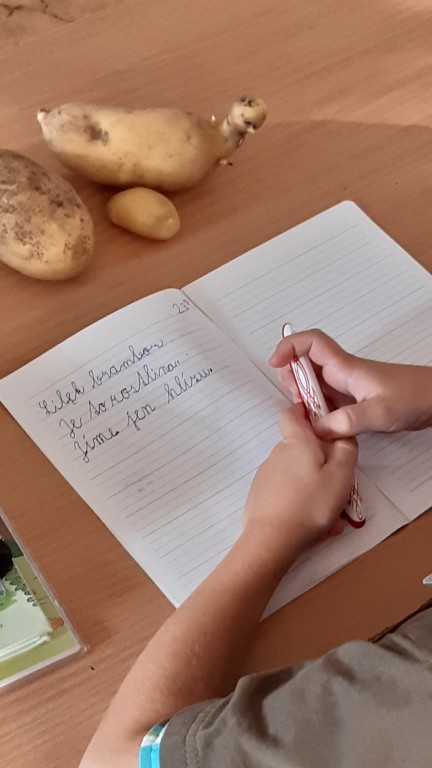 Lilek brambor
Je to rostlina.
Jíme jen hlízu.